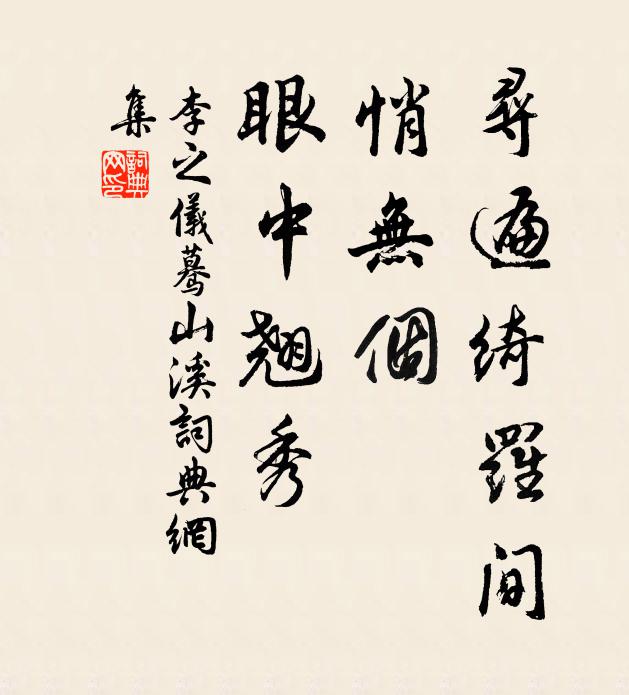 尋遍綺羅間
悄無個
眼中翹秀
李之儀驀山溪詞典網
集
詞典網印